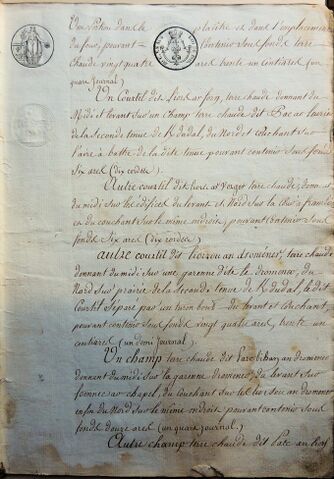 dans le placitre et dans l'emplacement
du four, pouvant contenir sous fonds terre
chaude vingt quatre ares trente un centiares (un
quart journal)
Un Courtil dit liors ar forn, terre chaude donnant du
Midi et levant sur un Champ terre chaude dit Parc ar
de la seconde tenue de K dudal, du Nord et couchant sur
l'aire à battre de la dite tenue pouvant contenir sous fonds
Six ares (dix cordes)
Autre courtil dit liors ar Verger terre chaude, donnant
du midi sur les édifices du levant et Nord sur la
du couchant sur le même endroit, pouvant contenir sous
fonds Six ares (dix cordes)
autre courtil dit an dromener, terre chaude
donnant du midi sur une garenne dite le dromener, du
Nord sur prairie de la seconde tenue de K dudal, le dit
Courtil séparé par un turon bond du levant et couchant,
pouvant contenir sous fonds vingt quatre ares, trente un
centiares (un demi journal)
Un champ terre chaude dit Parc bihan an dromener
donnant du midi sur la garenne dromener, du levant sur
ar chapel, du couchant sur le an dromener
enfin du Nord sur le même endroit pouvant contenir sous
fonds douze ares (un quart journal)
Autre champ terre chaude dit Parc an